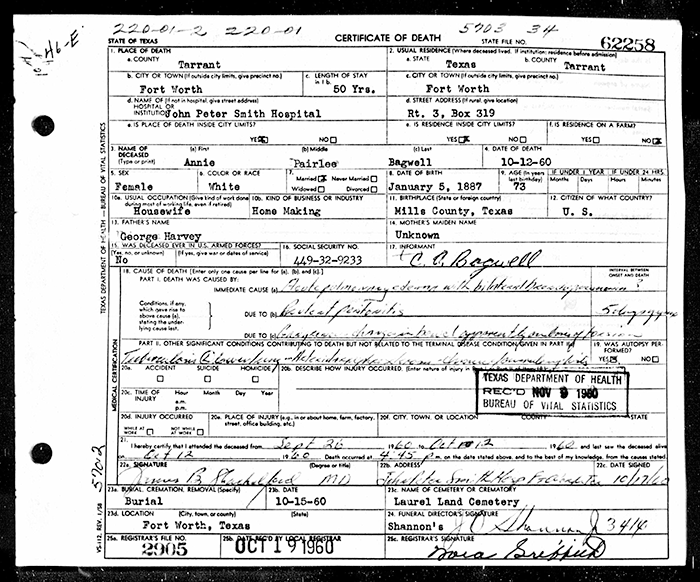 220-01-2 220-01 5703 34
STATE OF TEXAS CERTIFICATE OF DEATH STATE FILE NO. 62258
46-E
1. PLACE OF DEATH 2. USUAL RESIDENCE (Where deceased lived. If institution: residence before admission)
a. COUNTY a. STATE b. COUNTY
Tarrant Texas Tarrant
b. CITY OR TOWN (If outside city limits, give precinct no.) c. LENGTH OF STAY in 1 b. c. CITY OR TOWN (If outside city limits, give precinct no.)
Fort Worth 50 Yrs. Fort Worth
d. NAME OF (If not in hospital, give street address) HOSPITAL OR INSTITUTION d. STREET ADDRESS (If rural, give location)
John Peter Smith Hospital Rt. 3, Box 319
e. IS PLACE OF DEATH INSIDE CITY LIMITS? e. IS RESIDENCE INSIDE CITY LIMITS? f. IS RESIDENCE ON A FARM?
YES NO YES NO YES NO
3. NAME OF DECEASED (Type or print) (a) First (b) Middle (c) Last 4. DATE OF DEATH
Annie Pairlee Bagwell 10-12-60
5. SEX 6. COLOR OR RACE 7. Married Never Married Widowed Divorced 8. DATE OF BIRTH 9. AGE (In years last birthday) IF UNDER 1 YEAR IF UNDER 24 HRS.
Months Days Hours Minutes
Female White January 5, 1887 73
10a. USUAL OCCUPATION (Give kind of work done during most of working life, even if retired) 10b. KIND OF BUSINESS OR INDUSTRY 11. BIRTHPLACE (State or foreign country) 12. CITIZEN OF WHAT COUNTRY?
Housewife Home Making Mills County, Texas U. S.
13. FATHER'S NAME 14. MOTHER'S MAIDEN NAME
George Harvey Unknown
15. WAS DECEASED EVER IN U.S. ARMED FORCES? 16. SOCIAL SECURITY NO. 17. INFORMANT
(Yes, no, or unknown) (If yes, give war or dates of service)
No 449-32-9233 C. C. Bagwell
18. CAUSE OF DEATH [Enter only one cause per line for (a), (b), and (c).] INTERVAL BETWEEN ONSET AND DEATH
PART I. DEATH WAS CAUSED BY:
IMMEDIATE CAUSE (a) Acute pulmonary edema with bilateral
Conditions, if any, which gave rise to above cause (a), stating the under-lying cause last.
DUE TO (b) peritonitis
DUE TO (c)
PART II. OTHER SIGNIFICANT CONDITIONS CONTRIBUTING TO DEATH BUT NOT RELATED TO THE TERMINAL DISEASE CONDITION GIVEN IN PART I(a) 19. WAS AUTOPSY PERFORMED?
YES NO
20a. ACCIDENT SUICIDE HOMICIDE 20b. DESCRIBE HOW INJURY OCCURRED. (Enter nature of injury in Part I or Part II of item 18.)
20c. TIME OF INJURY Hour Month Day Year a.m. p.m.
TEXAS DEPARTMENT OF HEALTH
REC'D NOV 9 1960
BUREAU OF VITAL STATISTICS
20d. INJURY OCCURRED 20e. PLACE OF INJURY (e.g., in or about home, farm, factory, street, office building, etc.) 20f. CITY, TOWN, OR LOCATION COUNTY STATE
WHILE AT WORK NOT WHILE AT WORK
21. I hereby certify that I attended the deceased from Sept 26 1960 to Oct 12 1960 and last saw the deceased alive
on Oct 12 1960. Death occurred at 4:45 p m. on the date stated above, and to the best of my knowledge, from the causes stated.
22a. SIGNATURE (Degree or title) 22b. ADDRESS 22c. DATE SIGNED
B MD Smith Hosp 10/17/60
23a. BURIAL, CREMATION, REMOVAL (Specify) 23b. DATE 23c. NAME OF CEMETERY OR CREMATORY
Burial 10-15-60 Laurel Land Cemetery
23d. LOCATION (City, town, or county) (State) 24. FUNERAL DIRECTOR'S SIGNATURE
Fort Worth, Texas Shannon's J. C. Shannon Jr 3416
25a. REGISTRAR'S FILE NO. 25b. DATE REC'D BY LOCAL REGISTRAR 25c. REGISTRAR'S SIGNATURE
2905 OCT 19 1960
TEXAS DEPARTMENT OF HEALTH—BUREAU OF VITAL STATISTICS
MEDICAL CERTIFICATION
5702
VS-112, REV. 1/58